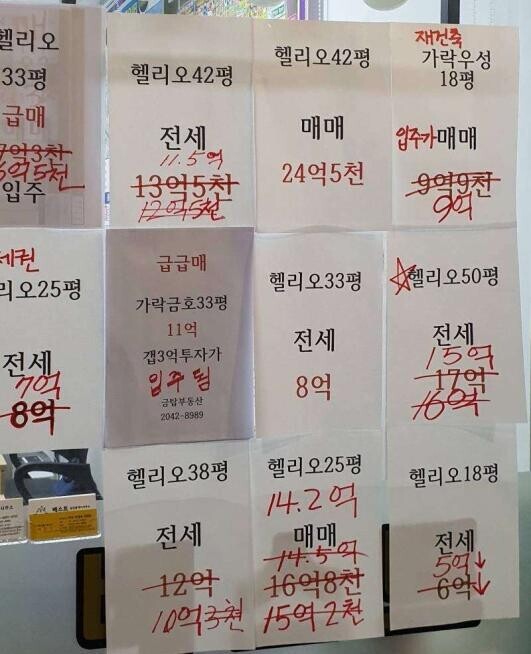 헬리오
33평
급매
입주
헬리오42평
전세
11.5억
13억5천
12억5천
헬리오42평
매매
24억5천
재건축
가락우성
18평
입주가 매매
9억9천
9억
리오25평
전세
7억
8억
급급매
가락금호33평
11억
갭3억투자가
입주 됨
금탑부동산
2042-8989
헬리오33평
전세
8억
☆헬리오50평
전세
15억
17억
16억
헬리오38평
전세
12억
10억3천
헬리오25평
14.2억
매매
14.5억
16억8천
15억2천
헬리오18평
전세
5억↓
6억↓
베스트